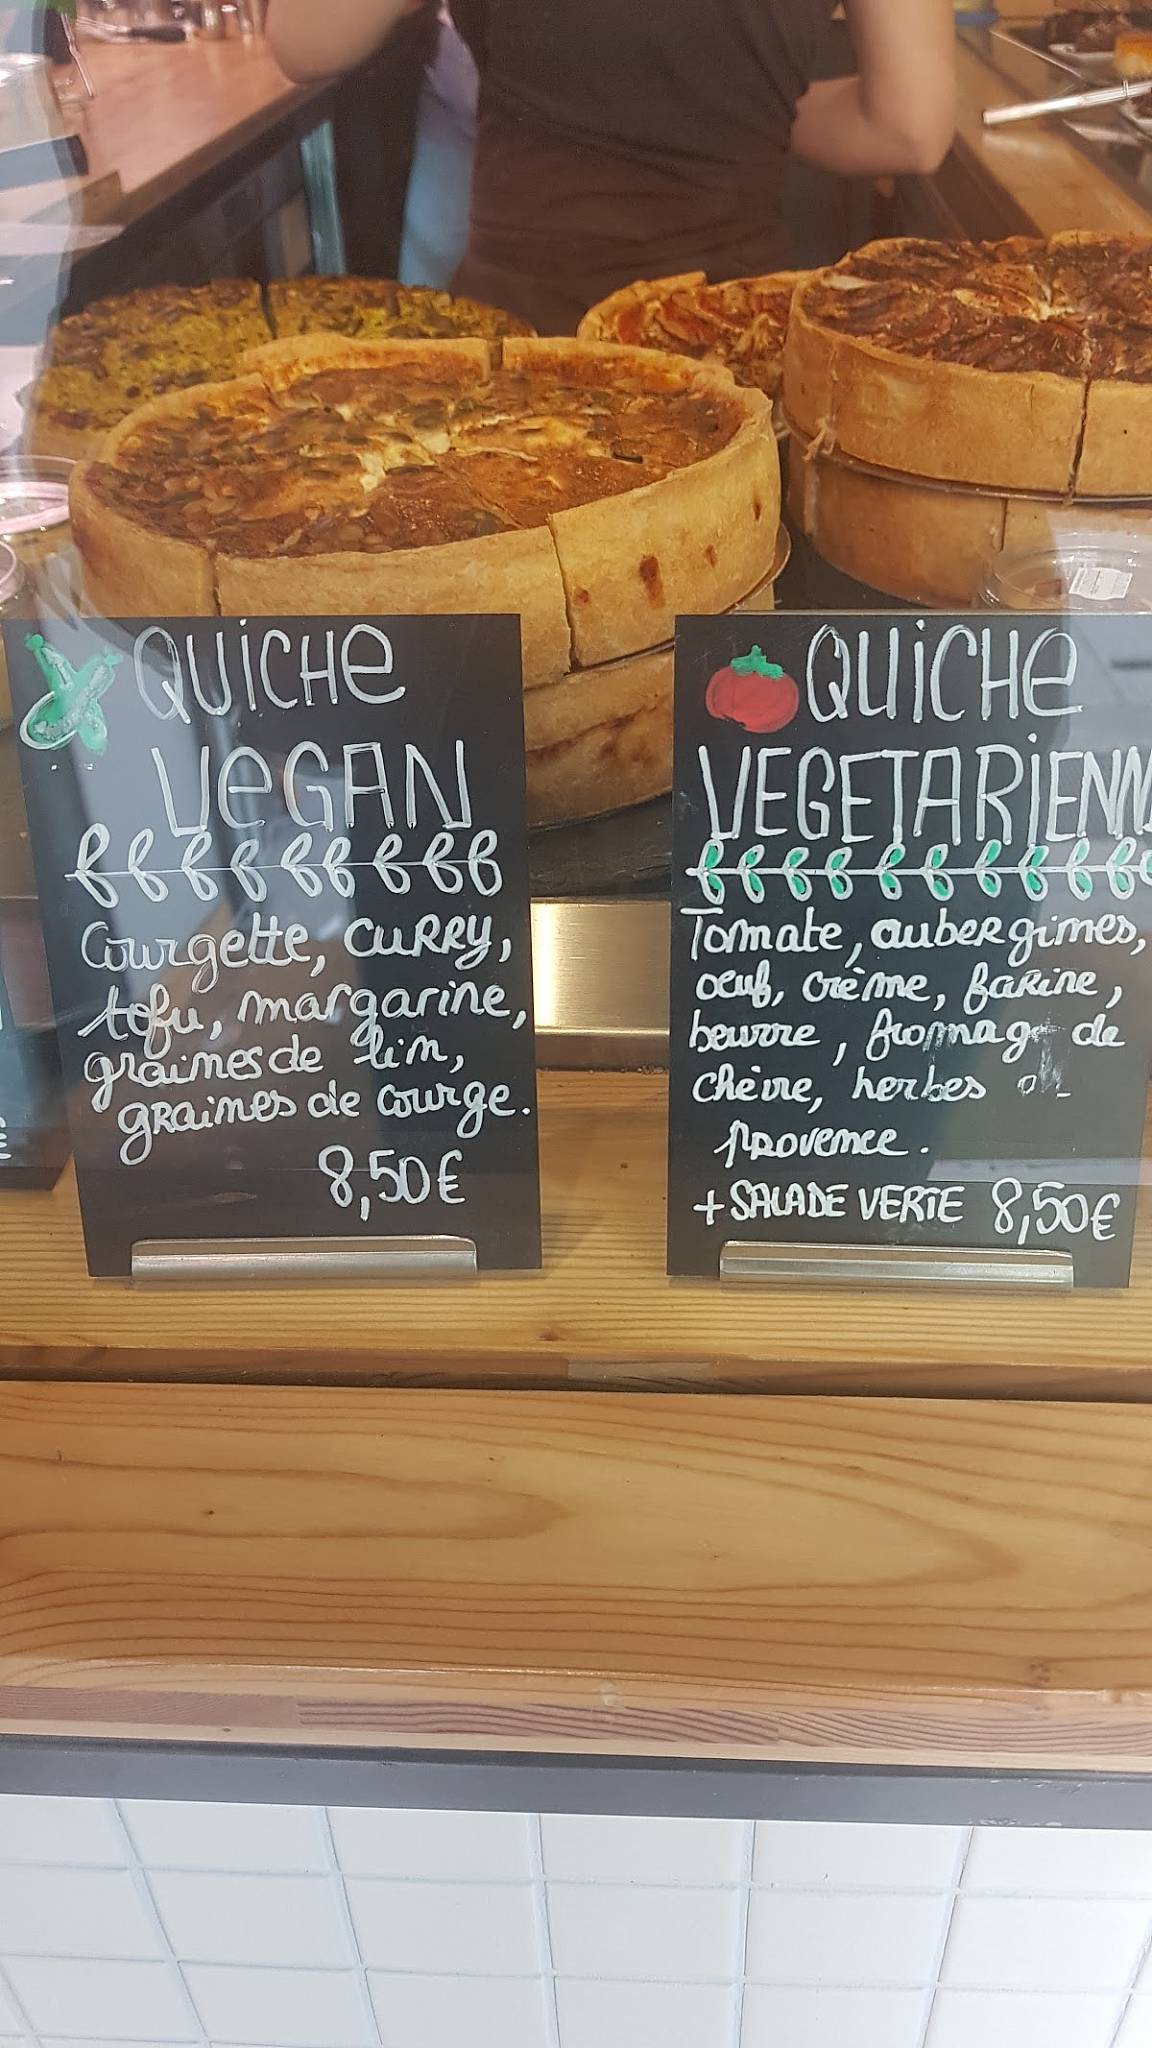 QUiCHe
VeGAN
Courgette, CURRY,
tofu, margarine,
graines de lin,
graines de courge.
8,50€
QUiCHe
VEGETARiENN
Tomate, aubergines,
oeuf, crème, farine,
beurre, fromage de
chèvre, herbes
provence.
+ SALADE VERTE 8,50€
€